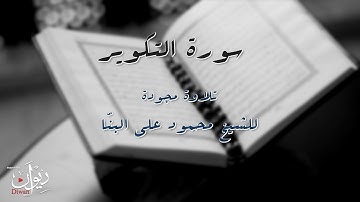 سورة التكوير
تلاوة مجودة
للشيخ محمود على البنّا
ديوان
Diwan